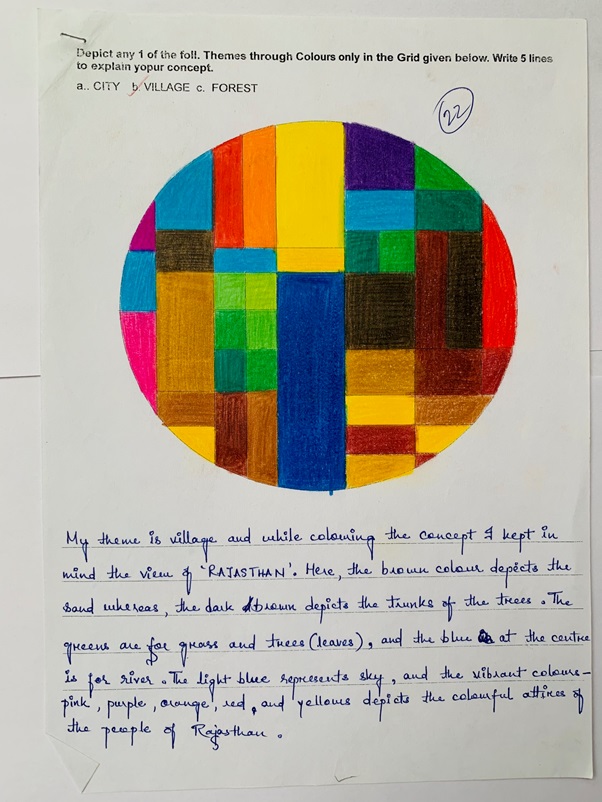 Depict any 1 of the foll. Themes through Colours only in the Grid given below. Write 5 lines
to explain yopur concept.
a.. CITY b. VILLAGE c. FOREST
22
My theme is village and while colouring the concept I kept in
mind the view of 'RAJASTHAN'. Here, the brown colour depicts the
sand whereas, the dark brown depicts the trunks of the trees. The
greens are for grass and trees (leaves), and the blue at the centre
is for river. The light blue represents sky, and the vibrant colours-
pink, purple, orange, red, and yellows depicts the colourful attires of
the people of Rajasthan.